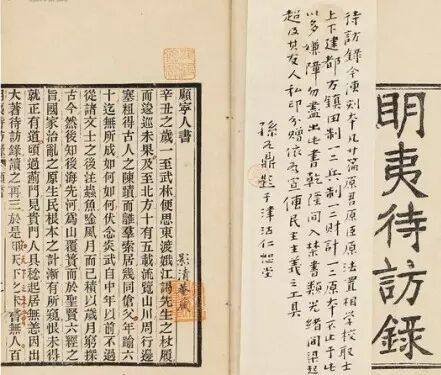 明夷待訪錄
待訪錄今便刻本凡廿篇原君原臣原法置相學校取士
上下建都方鎮田制一二三兵制一二三財計一二三原本不止于此
以多嫌障勿盡出此書乾隆间入禁書類光緒间梁啟
超及其友人私印分贈依為宣傳民主主義之工具
題于津沽仁恕堂
顧寧人書
辛丑之歲一至武林便思東渡娥江謁先生之杖履
而逡巡未果及至北方十有五載流覽山川周行邊
塞粗得古人之陳蹟而離羣索居幾同傖父年逾六
十迄無所成如何如何伏念炎武自中年以前不過
從諸文士之後注蟲魚唫風月而已積以歲月窮探
古今然後知後海先河為山覆簣而於聖賢六經之
旨國家治亂之原生民根本之計漸有所窺恨未得
就正有道頃過薊門見貴門人具稔起居無恙因出
大著待訪錄讀之再三於是知天下之未嘗無人百